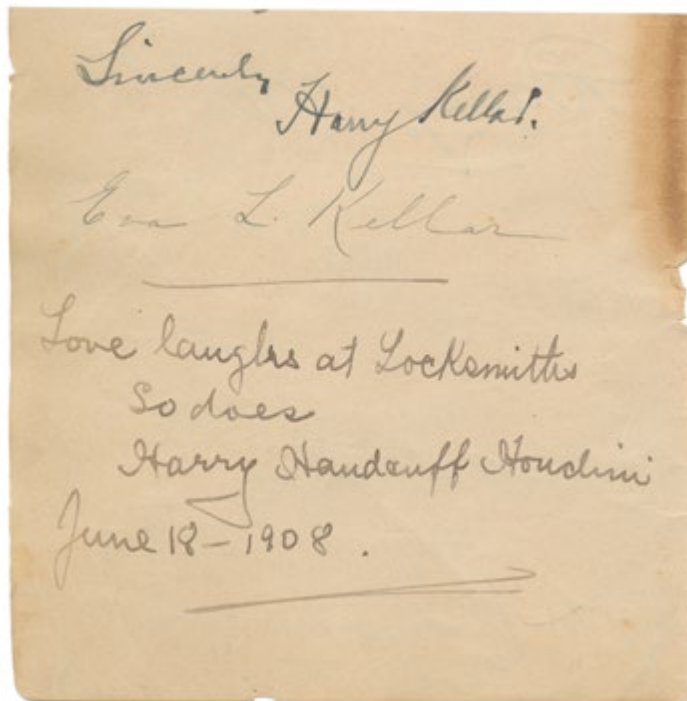 Sincerely
Harry Kellar.
Eva L. Kellar
Love laughs at Locksmiths
So does
Harry Handcuff Houdini
June 18 – 1908.